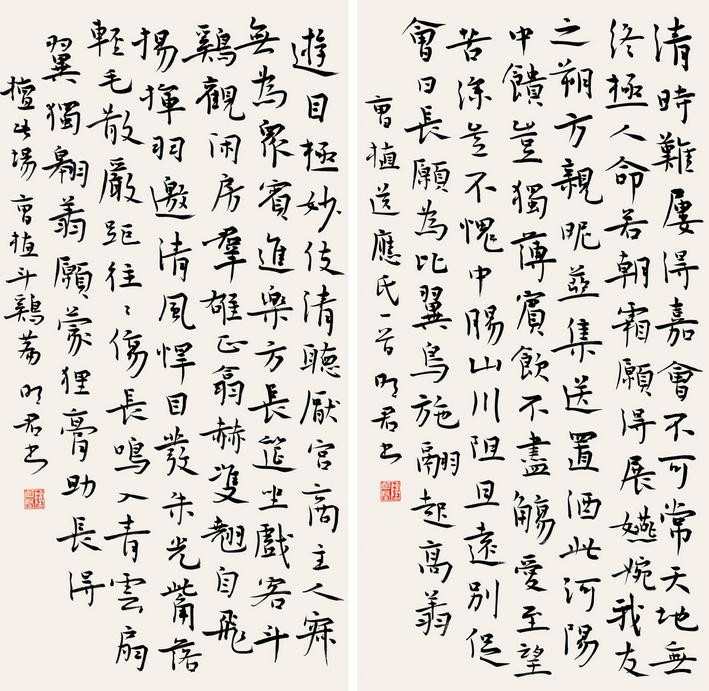 清時難屢得嘉會不可常天地無
終極人命若朝霜願得展嬿婉我友
之朔方親昵並集送置酒此河陽
中饋豈獨薄賓飲不盡觴愛至望
苦深豈不愧中腸山川阻且遠別促
會日長願為比翼鳥施翮起高翔
曹植送應氏一首 明君书
遊目極妙伎清聽厭宮商主人寂
無為眾賓進樂方長筵坐戲客斗
鷄觀閑房羣雄正翕赫雙翹自飛
揚揮羽邀清風悍目發朱光觜落
輕毛散嚴距往〻傷長鳴入青雲扇
翼獨翱翔願蒙狸膏助長得
擅此場 曹植斗鷄篇 明君书